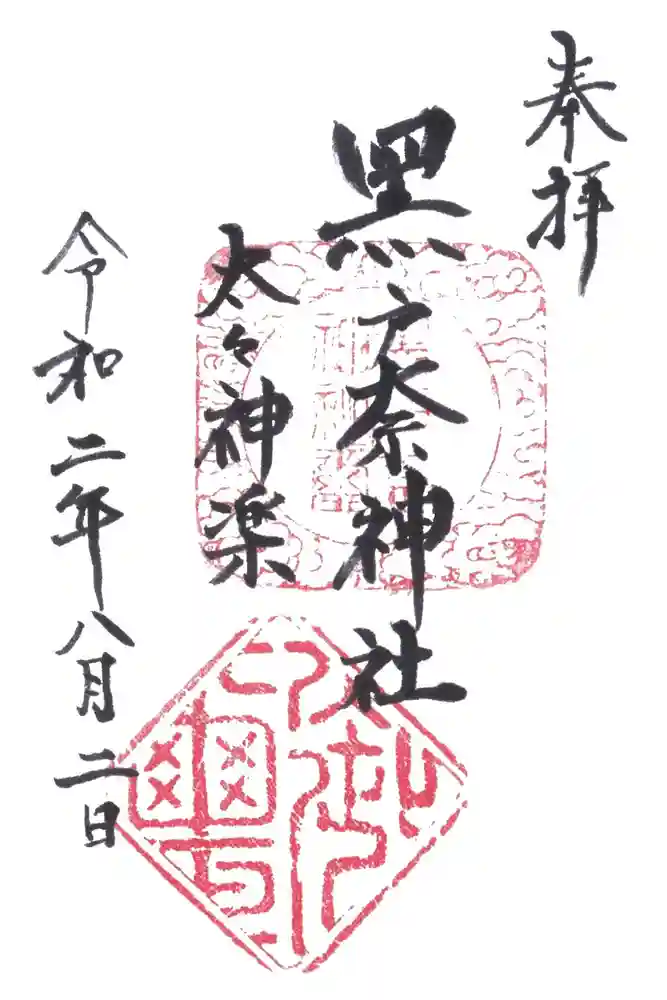 奉拝
黒戸奈神社
太々神楽
令和二年八月二日